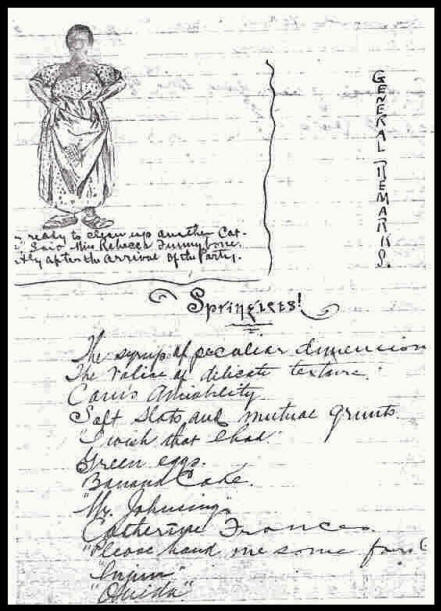 ready to clean up another Cat.
Said Miss Rebecca Funnybone,
after the arrival of the Party.
GENERAL REMARKS.
Springlets!
The syrup of peculiar dimension
The valise of delicate texture.
Amiability
Soft Slats and mutual grunts.
"I wish that I had
Green eggs.
Banana Cake.
"Mr. Johnsing"
Catherine Frances.
"Please hand me some
"Injun"
"Oneida"